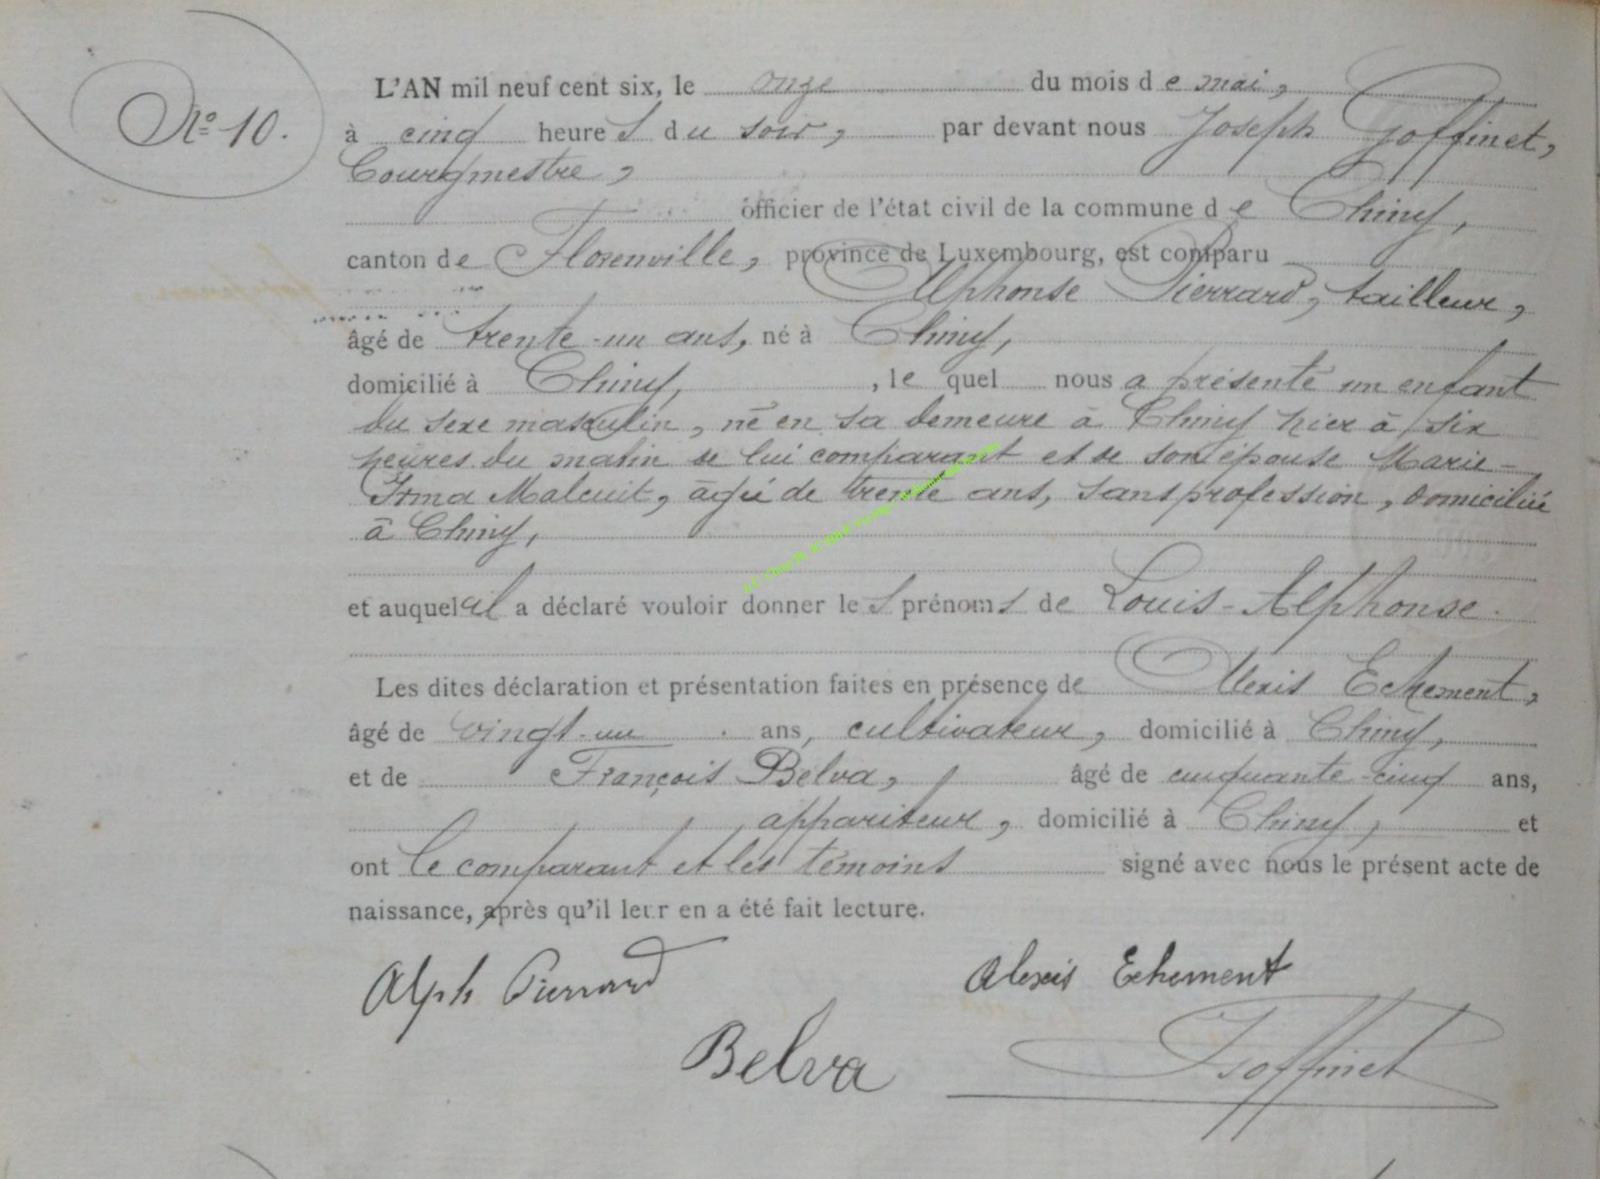 L'AN mil neuf cent six, le onze du mois de mai,
No 10.
à cinq heures du soir, par devant nous Joseph Goffinet,
Bourgmestre,
officier de l'état civil de la commune de Chiny,
canton de Florenville, province de Luxembourg, est comparu
Alphonse Pierrard, tailleur,
âgé de trente-un ans, né à Chiny,
domicilié à Chiny, , le quel nous a présenté un enfant
du sexe masculin, né en sa demeure à Chiny hier à six
heures du matin de lui comparant et de son épouse Marie-
Irma Malcuit, âgée de trente ans, sans profession, domiciliée
à Chiny,
et auquel il a déclaré vouloir donner les prénoms de Louis-Alphonse.
Les dites déclaration et présentation faites en présence de Alexis Echement,
âgé de vingt-un ans, cultivateur, domicilié à Chiny,
et de François Belva, âgé de cinquante-cinq ans,
appariteur, domicilié à Chiny, et
ont le comparant et les témoins signé avec nous le présent acte de
naissance, après qu'il leur en a été fait lecture.
Alph Pierrard
Alexis Echement
Belva
J Goffinet